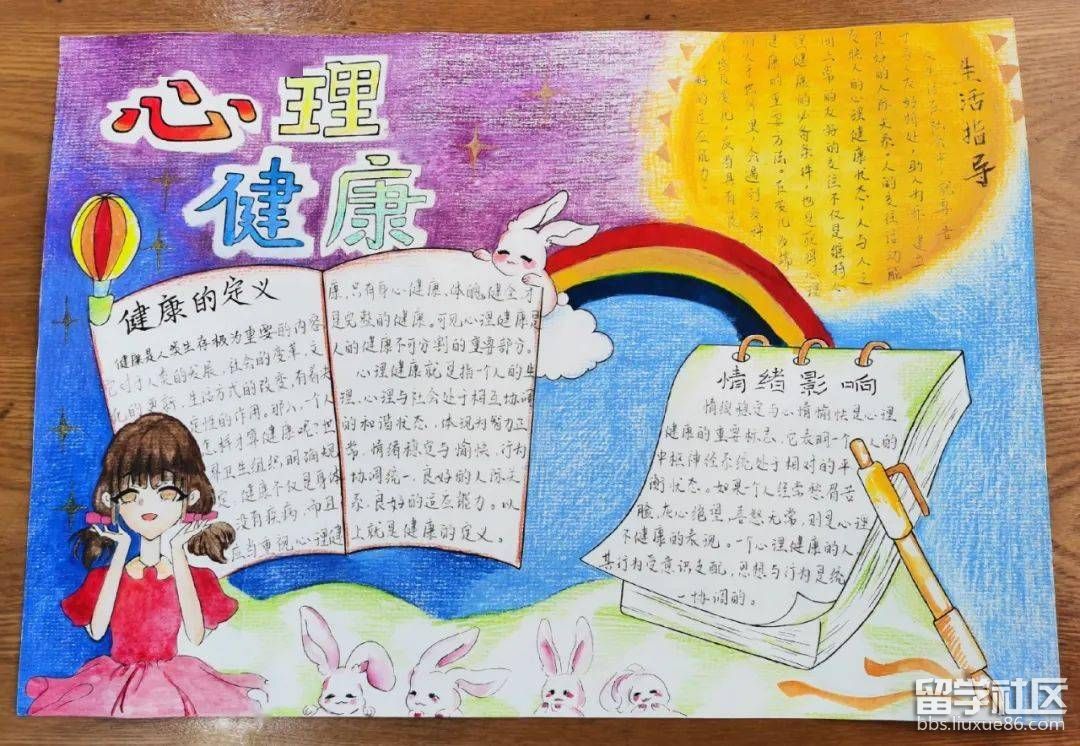 心理
健康
健康的定义
健康是人类生存极为重要的内容
它对于人类的发展,社会的变革,文
化的更新,生活方式的改变,有着决
定性的作用。那么,一个人
怎样才算健康呢?世
界卫生组织,明确规
定,健康不仅是身体
没有疾病,而且
应当重视心理健
康,只有身心健康、体魄健全,才
是完整的健康。可见心理健康是
人的健康不可分割的重要部分。
心理健康就是指一个人的生
理、心理与社会处于相互协调
的和谐状态,体现为智力正
常,情绪稳定与愉快,行为
协调统一,良好的人际关
系,良好的适应能力。以
上就是健康的定义。
生活指导
良好的人际关系。人的交往活动能
反映人的心理健康状态,人与人之
间正常的友好的交往不仅是维持心
理健康的必备条件,也是获得心理
健康的重要方法。
好的适应能力。
情绪影响
情绪稳定与心情愉快是心理
健康的重要标志,它表明一个人的
中枢神经系统处于相对的平
衡状态。如果一个人经常愁眉苦
脸,灰心绝望,喜怒无常,则是心理
不健康的表现。一个心理健康的人
其行为受意识支配,思想与行为是统
一协调的。
留学社区
bbs.liuxue86.com